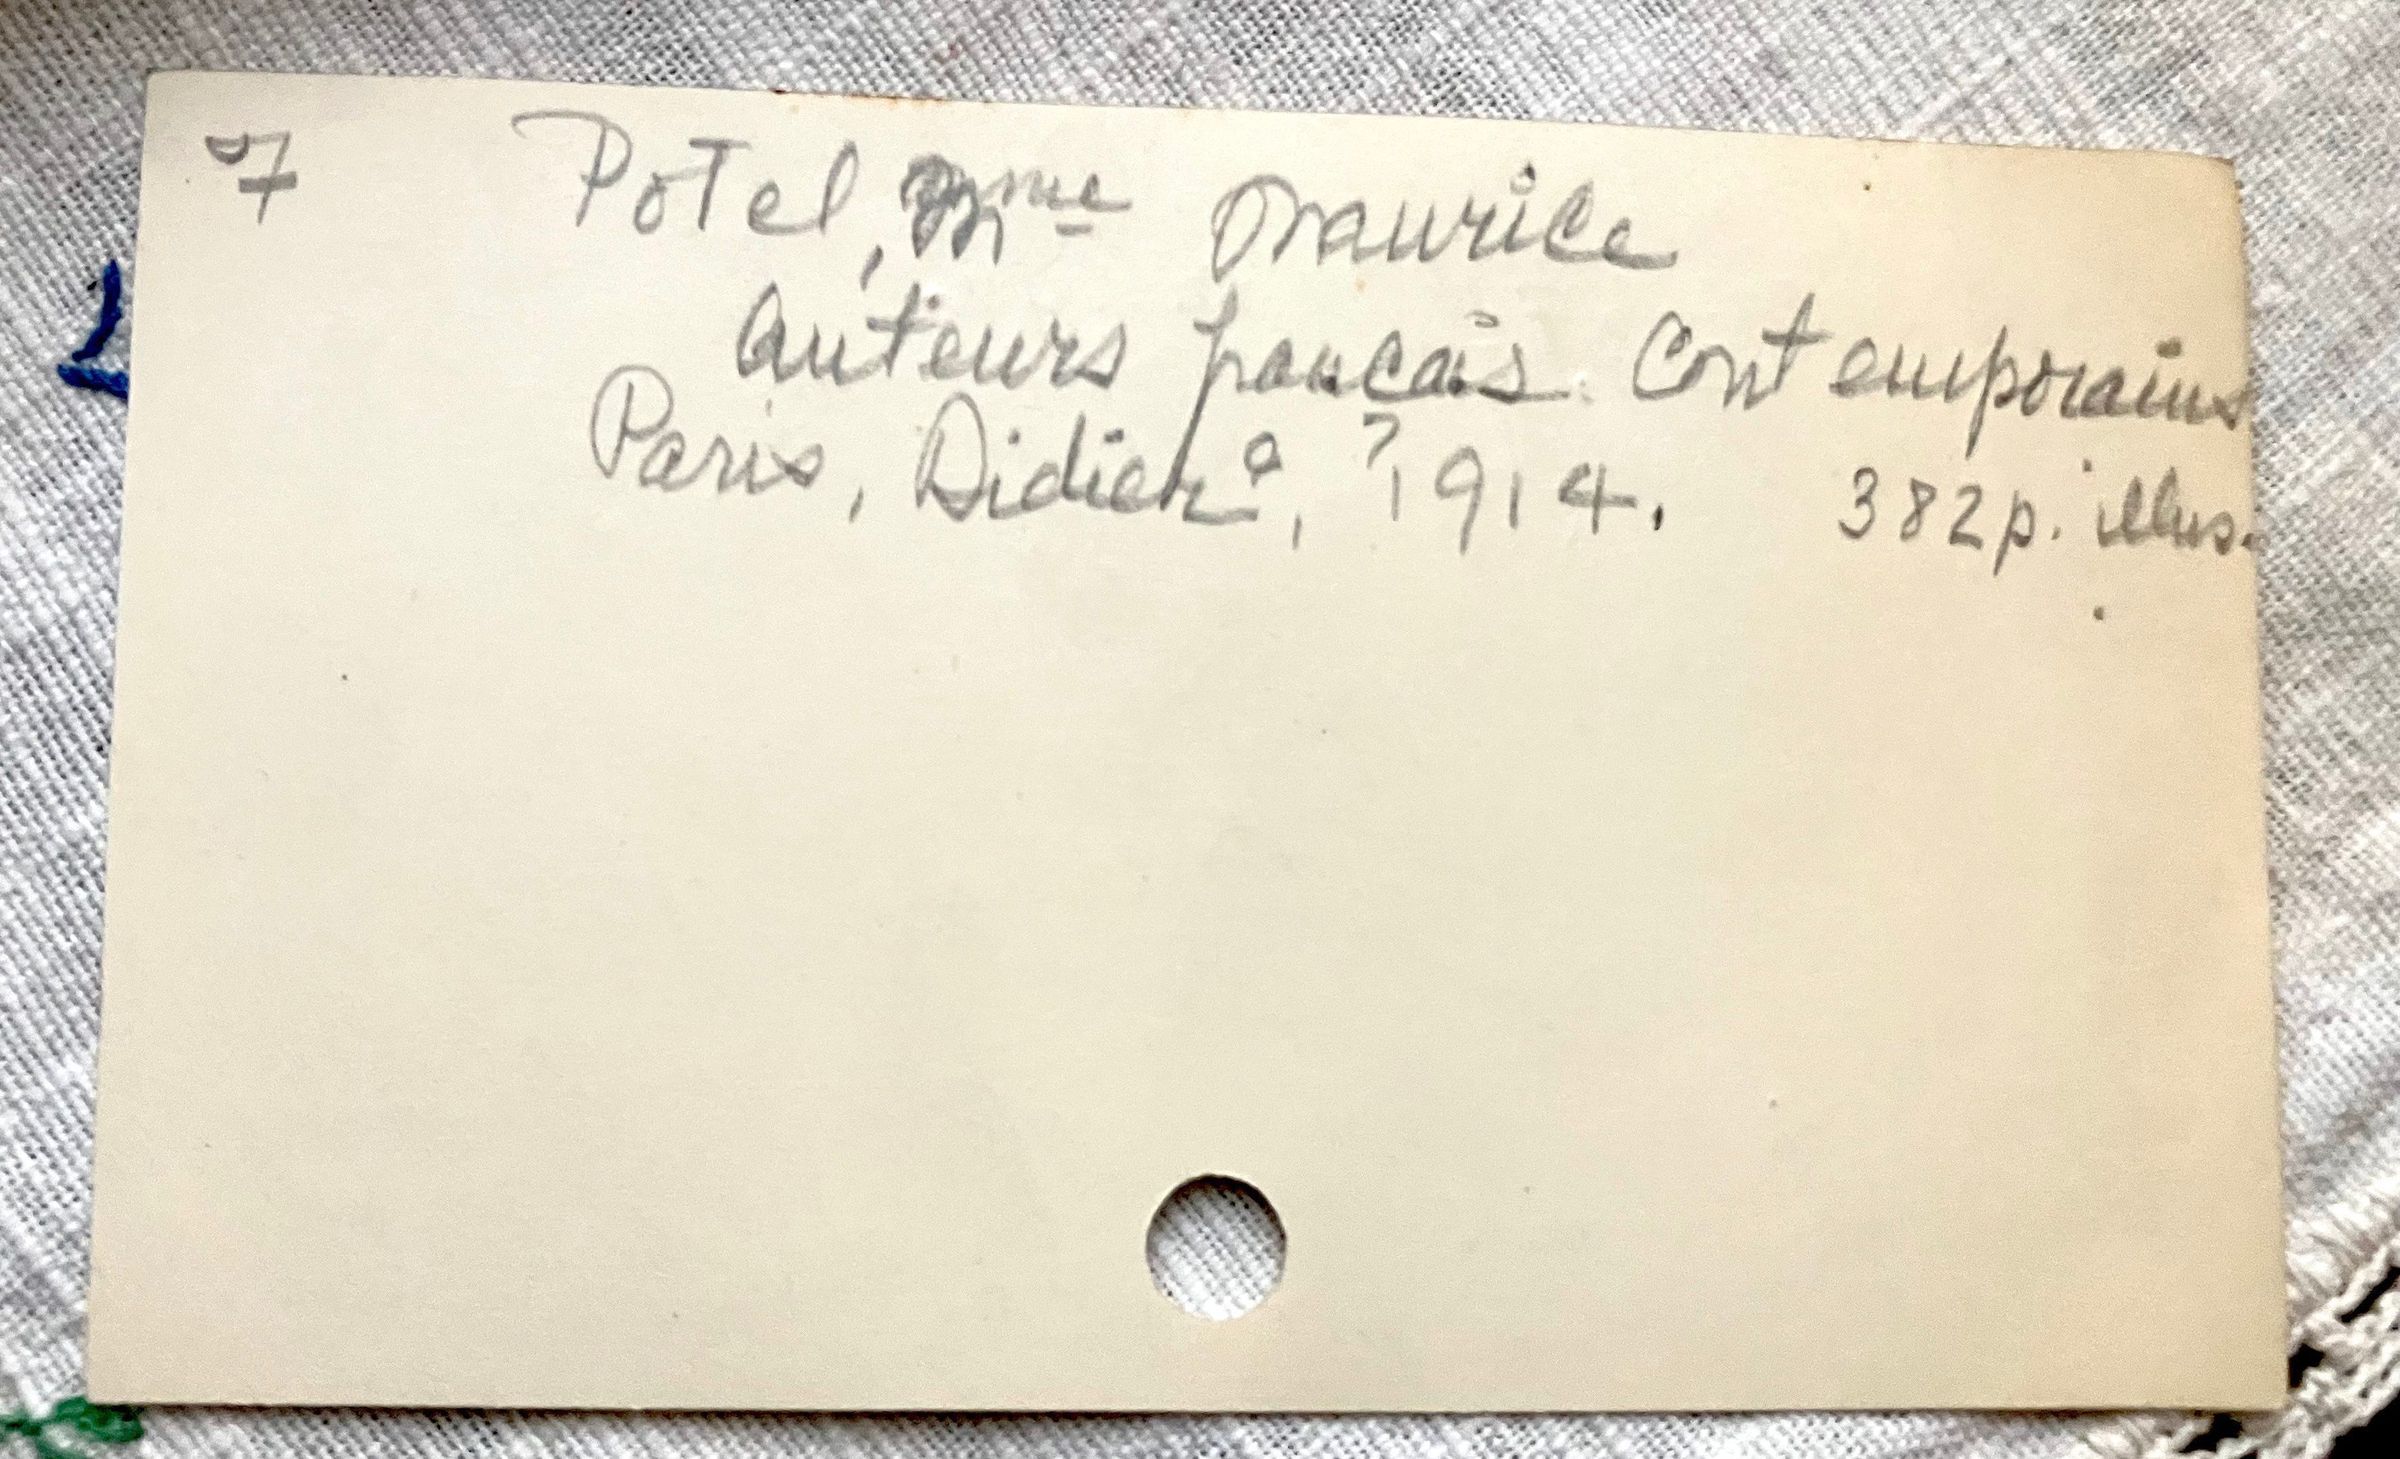 7 Potel, Mme Maurice
Auteurs français Contemporains
Paris, Didier, ?1914. 382p. illus.